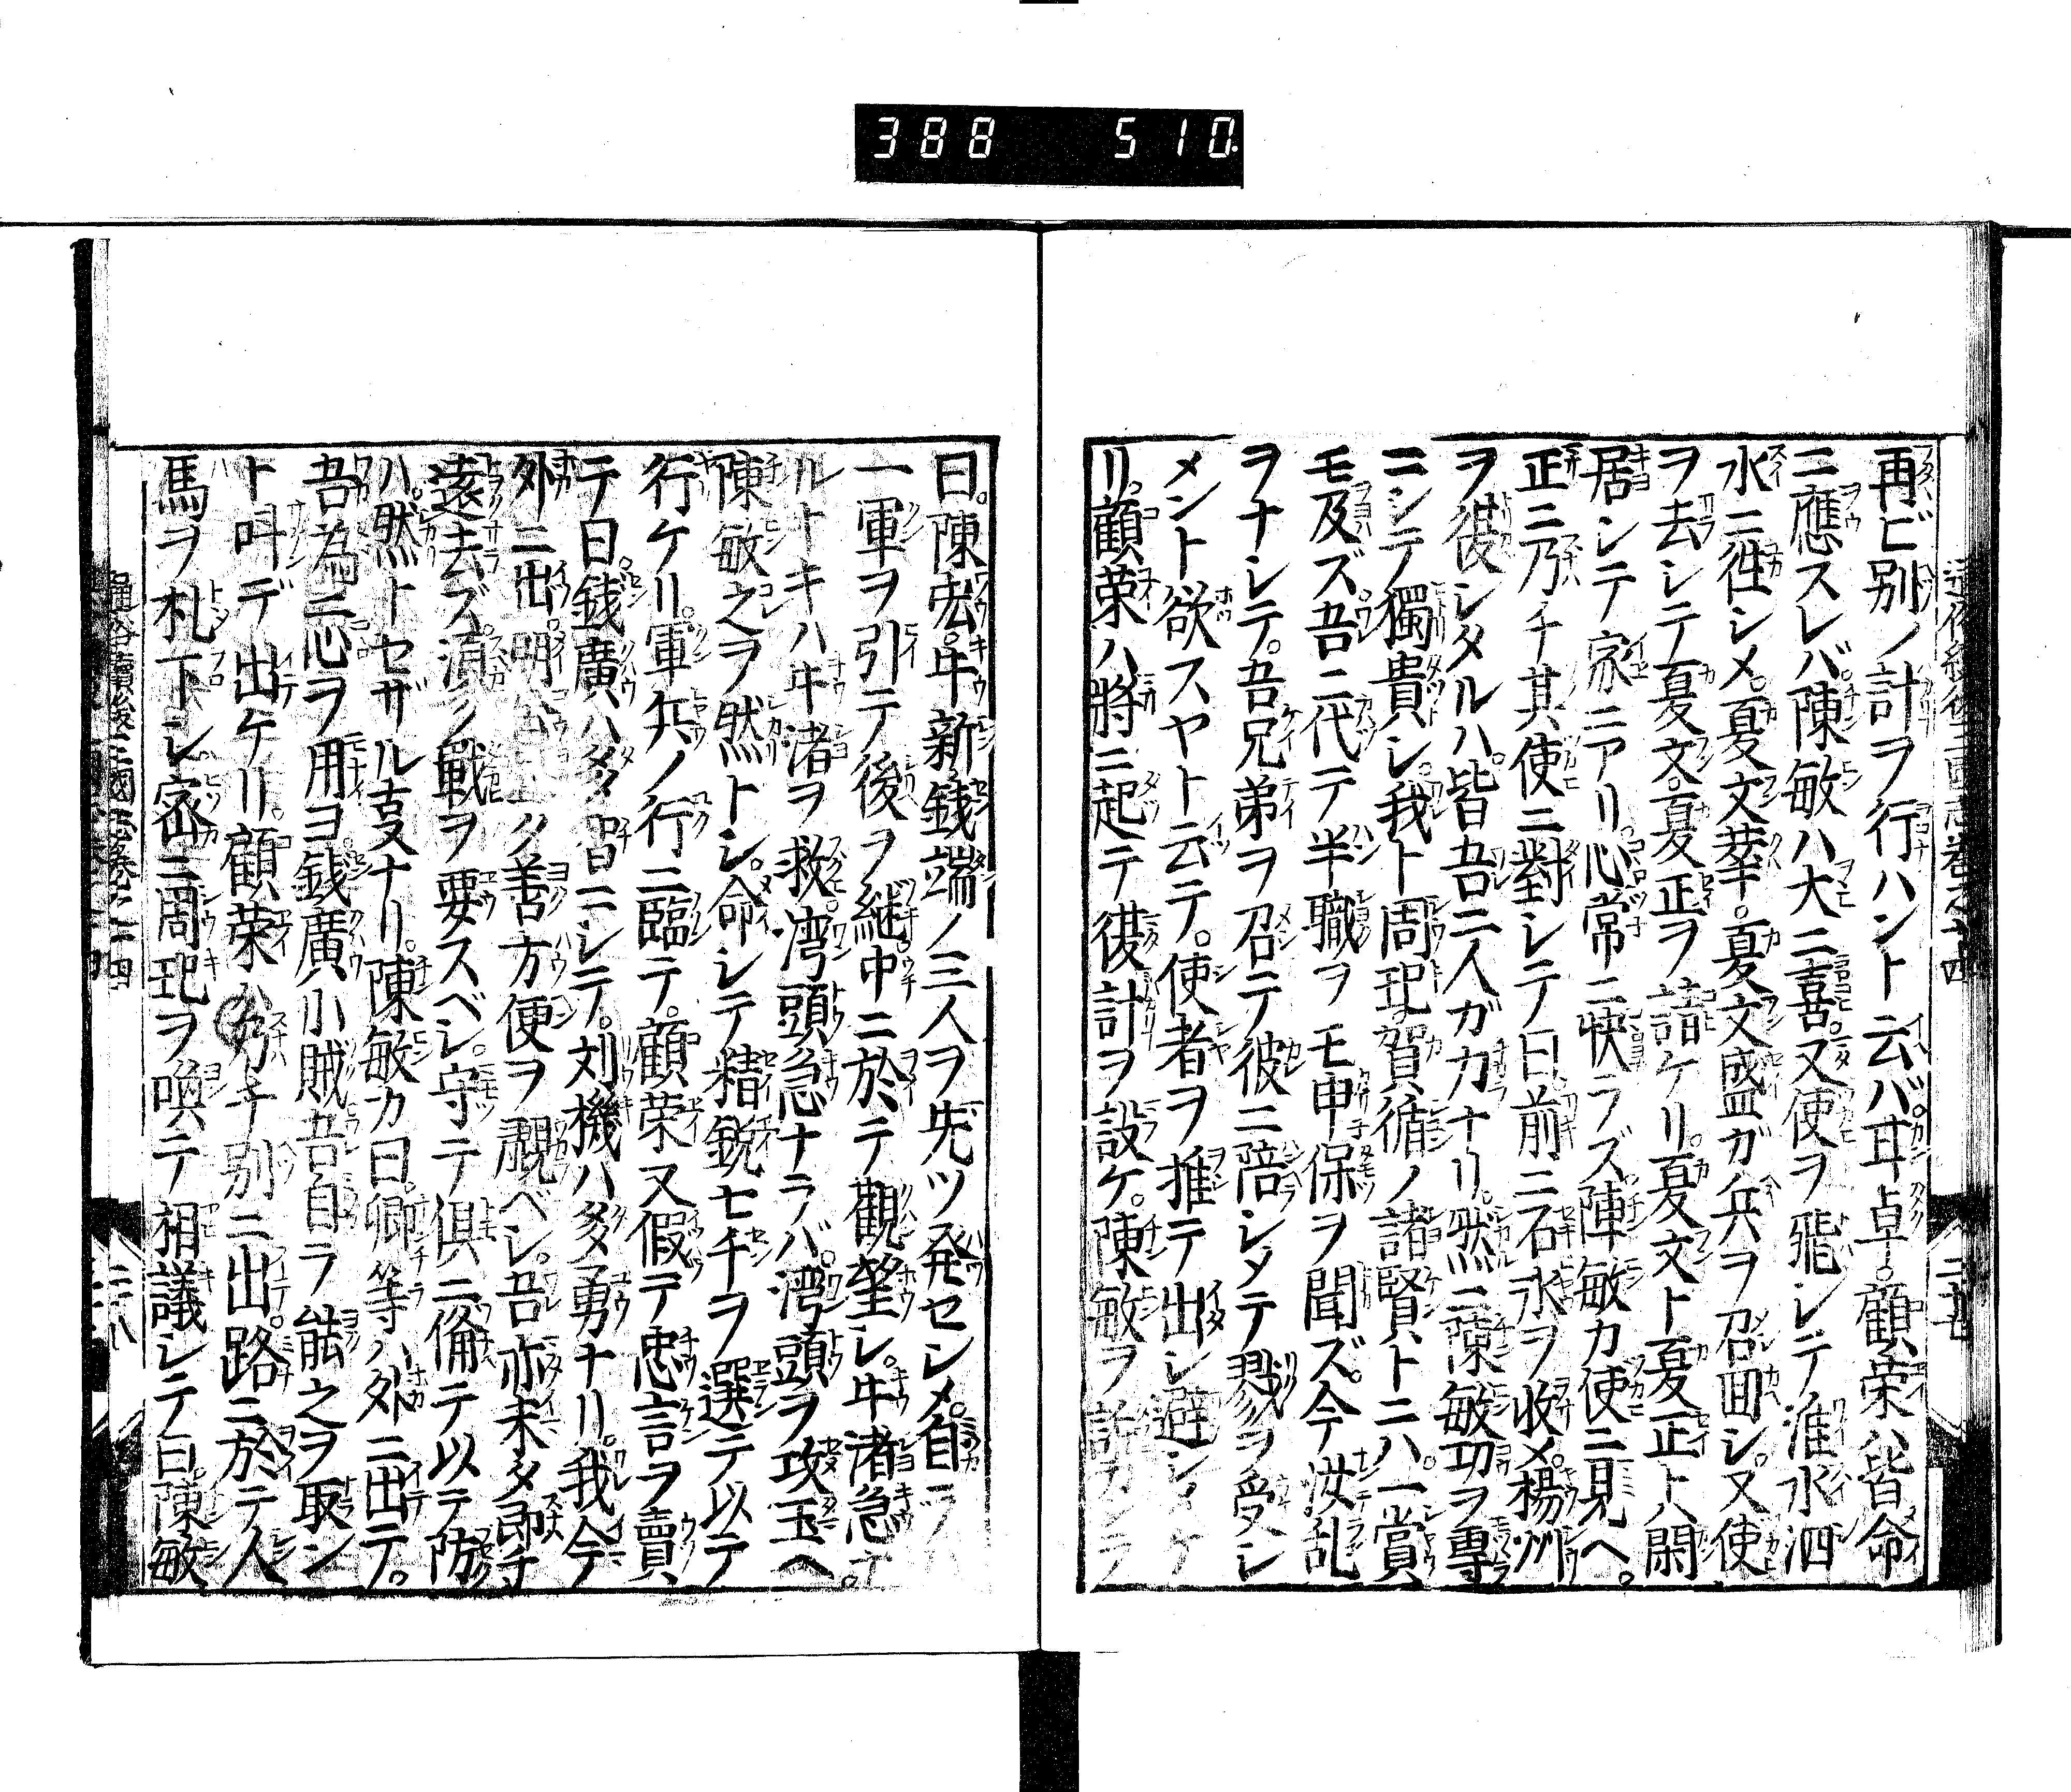 388 510
再ビ別ノ計ヲ行ハント云バ甘卓。顧荣ハ皆命
ニ應スレバ陳敏ハ大ニ喜。又使ヲ飛シテ淮水泗
水ニ徃シメ。夏文華。夏文盛ガ兵ヲ召囬シ。又使
ヲ去シテ夏文。夏正ヲ請ケリ。夏文ト夏正トハ閑
居シテ家ニアリ心常ニ快ラズ。陳敏カ使ニ見ヘ。
正ニ乃チ其使ニ對シテ曰前ニ石氷ヲ收メ。楊州
ヲ復シタルハ。皆吾二人ガ力ナリ。然ニ陳敏功ヲ專
ニシテ獨貴シ。我ト周玘。賀循ノ諸賢トニハ。一賞
モ及ズ吾ニ代テ半職ヲモ申保ヲ聞ズ。今汝乱
ヲナシテ。吾兄弟ヲ召テ彼ニ陪シメテ戮ヲ受シ
メント欲スヤト云テ。使者ヲ推テ出シ避シメケ
リ。顧荣ハ將ニ起テ復計ヲ設ケ。陳敏ヲ
曰。陳宏。牛新錢端ノ三人ヲ先ツ発セシメ。自ラ
一軍ヲ引テ後ヲ継。中ニ於テ觀望シ。牛渚急ナ
ルトキハ牛渚ヲ救。湾頭急ナラバ。湾頭ヲ攻玉ヘ。
陳敏之ヲ然トシ。命シテ精鋭七千ヲ選テ以テ
行ケリ。軍兵ノ行ニ臨テ。顧荣又假テ忠言ヲ賣
テ曰。銭廣ハ多智ニシテ。刘機ハ多勇ナリ。我今
外ニ出。明公ク善方便ヲ覩ベシ。吾亦未タ即チ
遠去ズ。須ク戰ヲ要スベシ。守テ俱ニ備テ以テ防
ハ。然トセザル支ナリ。陳敏カ曰。卿等ハ外ニ出テ。
吾為ニ心ヲ用ヨ銭廣ハ小賊吾自ラ能之ヲ取ン
ト呌デ出ケリ。顧荣ハ乃チ別ニ出。路ニ於テ人
馬ヲ札下シ。密ニ周玘ヲ喚テ相議シテ曰。陳敏